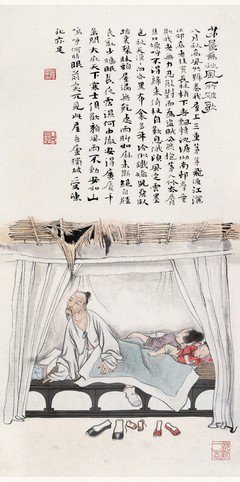 茅屋為秋風所破歌
八月秋高風怒號卷我屋上三重茅茅飛渡江灑
江郊高者掛罥長林梢下者飄轉沉塘坳南村群童欺
我老無力忍能對面為盜賊公然抱茅入竹去唇
焦口燥呼不得歸來倚杖自歎息俄頃風定雲墨
色秋天漠漠向昏黑布衾多年冷似鐵嬌兒惡臥
踏裏裂床頭屋漏無乾處雨腳如麻未斷絕自經
喪亂少睡眠長夜沾濕何由徹安得廣廈千
萬間大庇天下寒士俱歡顏風雨不動安如山
嗚呼何時眼前突兀見此屋吾廬獨破受凍
死亦足